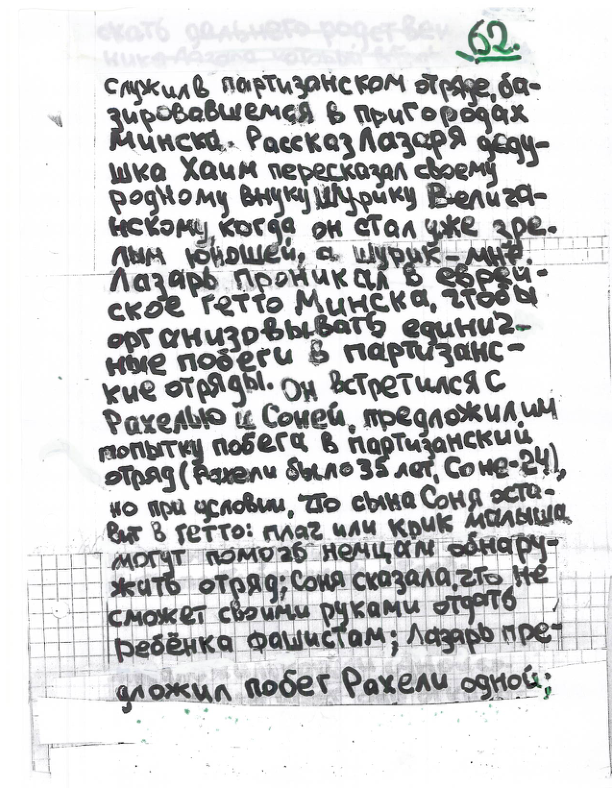 62.
служил в партизанском отряде, ба-
зировавшемся в пригородах
Минска. Рассказ Лазаря деду-
шка Хаим пересказал своему
родному внуку Шурику Велига-
нскому, когда он стал уже зре-
лым юношей, а Шурик - мне.
Лазарь проникал в еврей-
ское гетто Минска, чтобы
организовывать единич-
ные побеги в партизанс-
кие отряды. Он встретился с
Рахелью и Соней, предложил им
попытку побега в партизанский
отряд (Рахели было 35 лет, Соне-24),
но при условии, что сына Соня оста-
вит в гетто: плач или крик малыша
могут помочь немцам обнару-
жить отряд; Соня сказала, что не
сможет своими руками отдать
ребёнка фашистам; Лазарь пре-
дложил побег Рахели одной;